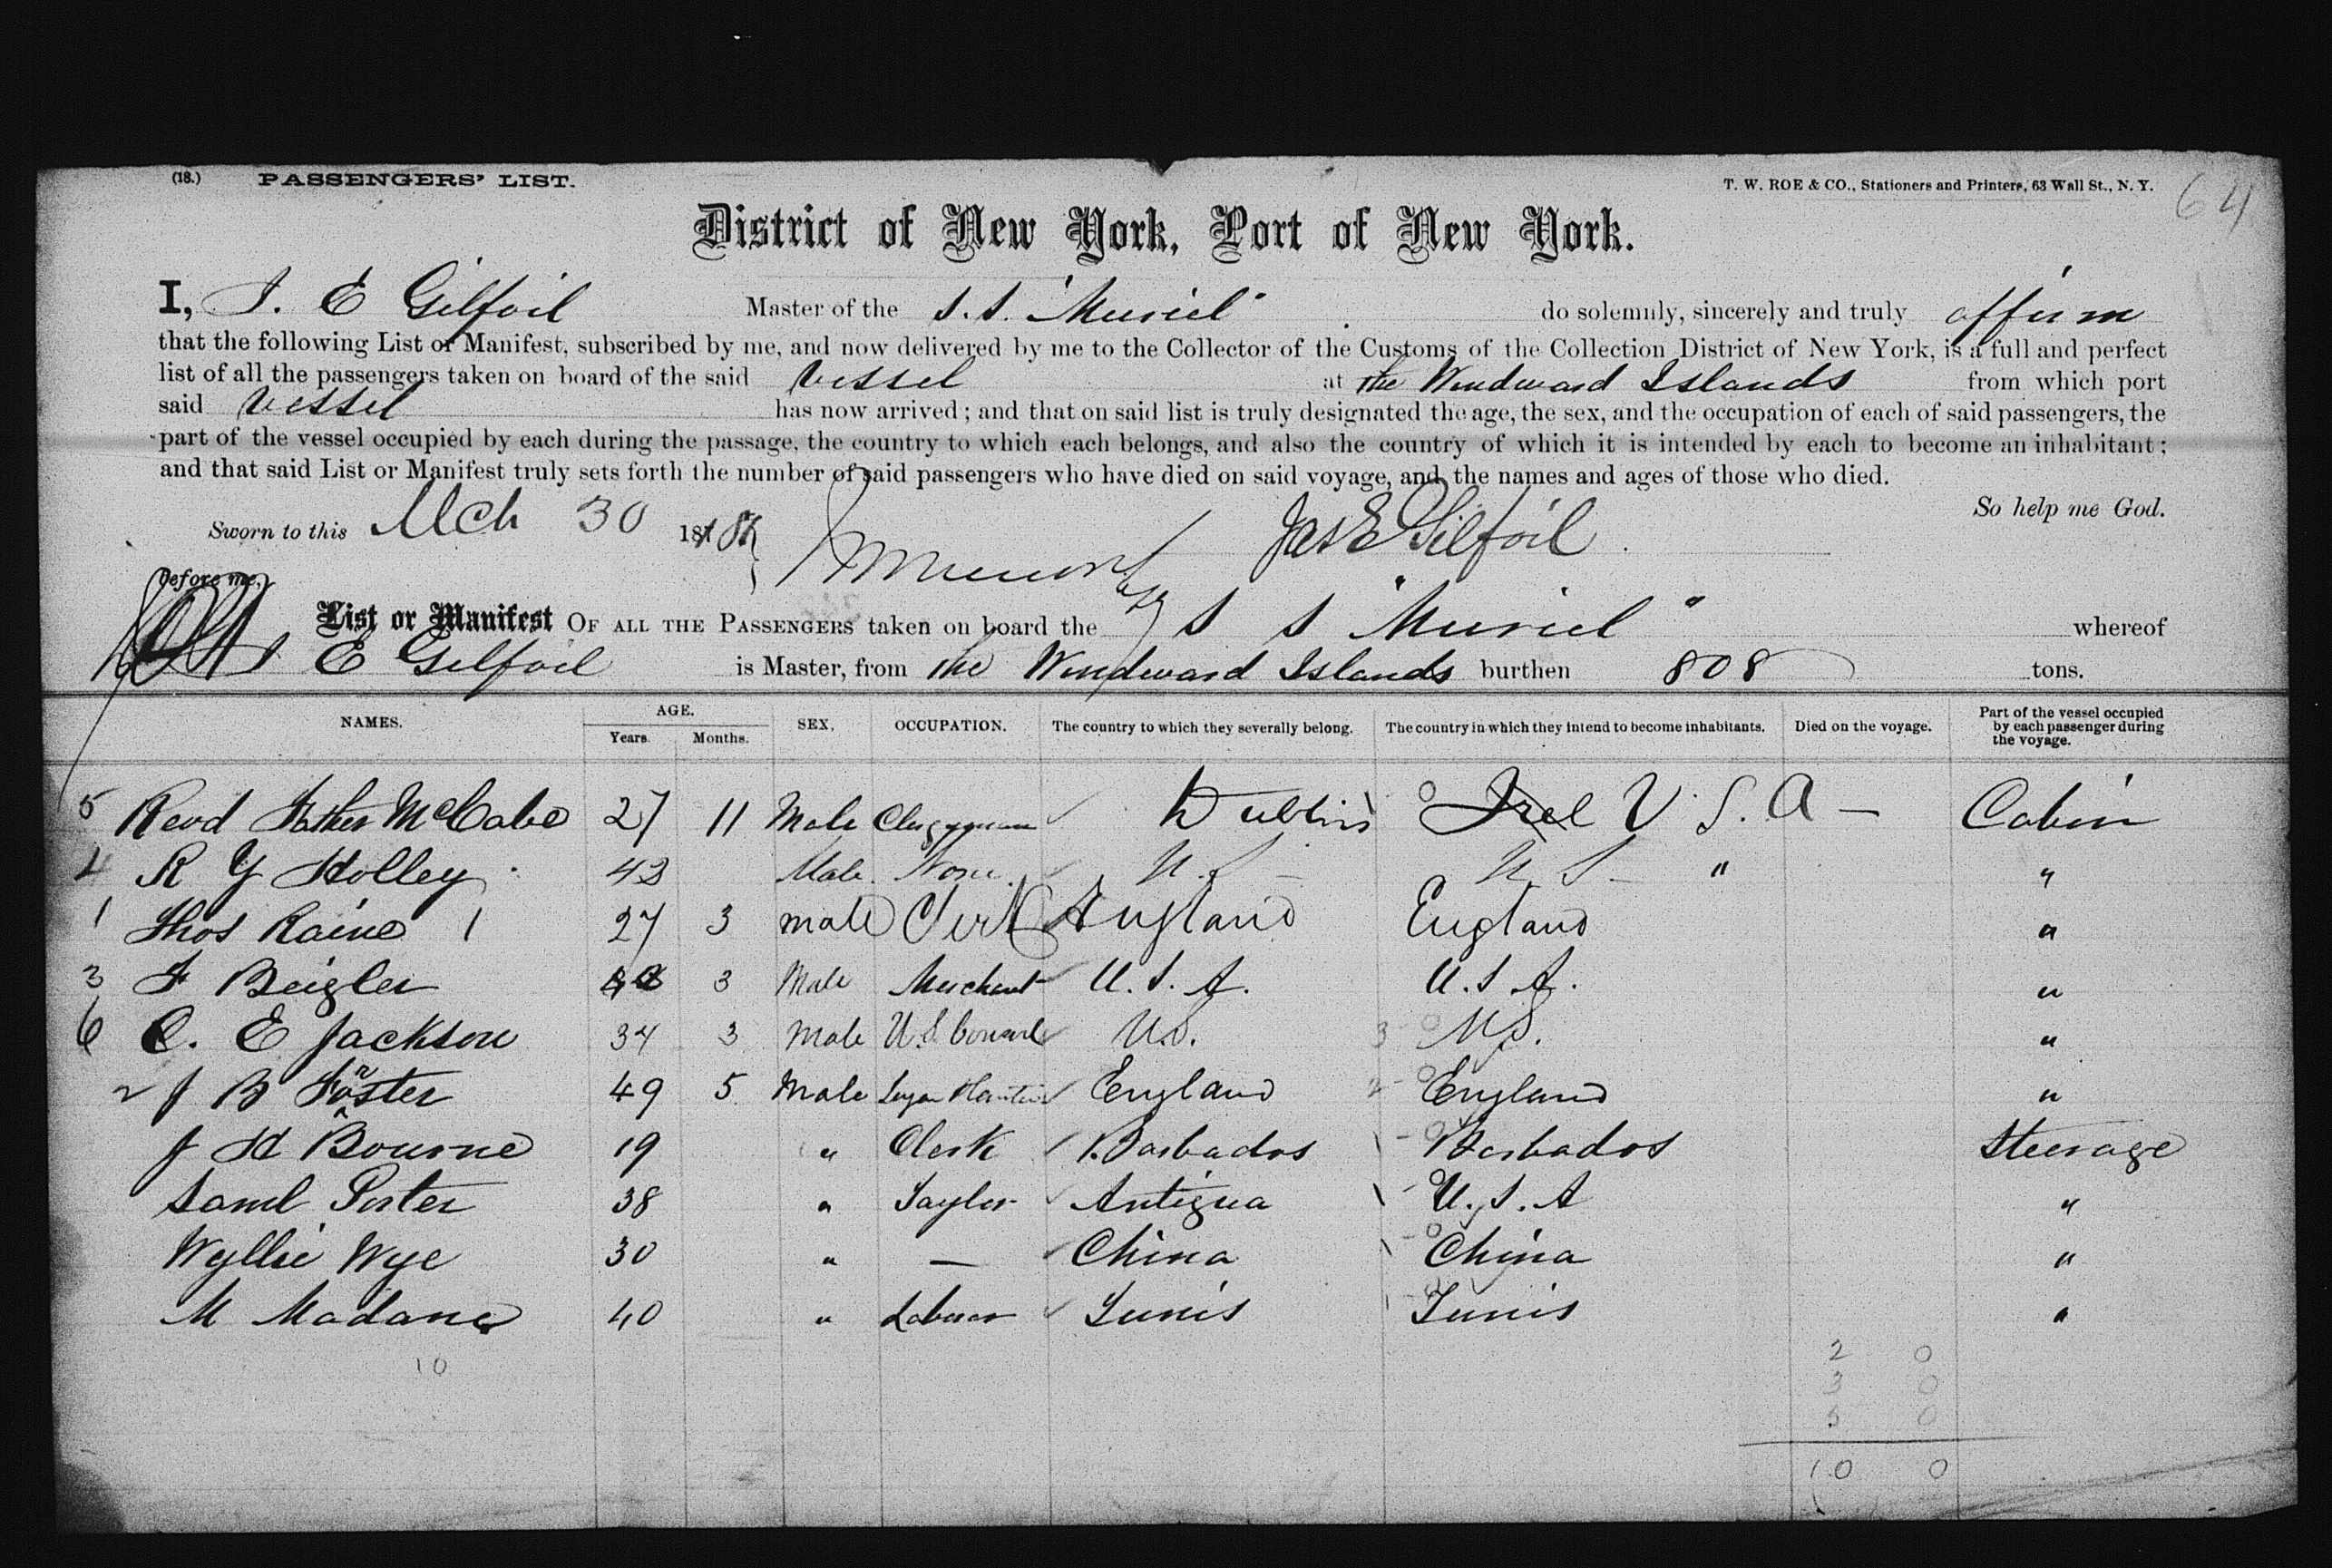 (18.) PASSENGERS' LIST. T. W. ROE & CO., Stationers and Printers, 63 Wall St., N. Y. 64
District of New York, Port of New York.
I, J. E Gilfoil Master of the S.S. "Muriel" do solemnly, sincerely and truly affirm
that the following List or Manifest, subscribed by me, and now delivered by me to the Collector of the Customs of the Collection District of New York, is a full and perfect
list of all the passengers taken on board of the said Vessel at the Windward Islands from which port
said Vessel has now arrived; and that on said list is truly designated the age, the sex, and the occupation of each of said passengers, the
part of the vessel occupied by each during the passage, the country to which each belongs, and also the country of which it is intended by each to become an inhabitant;
and that said List or Manifest truly sets forth the number of said passengers who have died on said voyage, and the names and ages of those who died.
So help me God.
Sworn to this Mch 30 18 Jas E Gilfoil
before me,
List or Manifest OF ALL THE PASSENGERS taken on board the S S "Muriel" whereof
E Gilfoil is Master, from the Windward Islands burthen 808 tons.
NAMES. AGE. Years. Months. SEX. OCCUPATION. The country to which they severally belong. The country in which they intend to become inhabitants. Died on the voyage. Part of the vessel occupied by each passenger during the voyage.
5 Revd Father McCabe 27 11 Male Clergyman Dublin Irel U.S.A — Cabin
4 R Y Holley 43 Male None U.S — U S — " "
1 Thos Raine 1 27 3 male Clerk England England "
3 F Beigler 3 Male Merchant U.S.A. U.S.A. "
6 C. E Jackson 34 3 Male U.S. Consul US. 3 US. "
2 J B Foster 49 5 Male Sugar Planter England 2 England "
J H Bourne 19 " Clerk Barbados Barbados Steerage
Saml Porter 38 " Taylor Antigua U.S.A "
Wyllie Wye 30 " — China China "
M Madane 40 " Labourer Tunis Tunis "
10
2 0
3 0
5 0
10 0